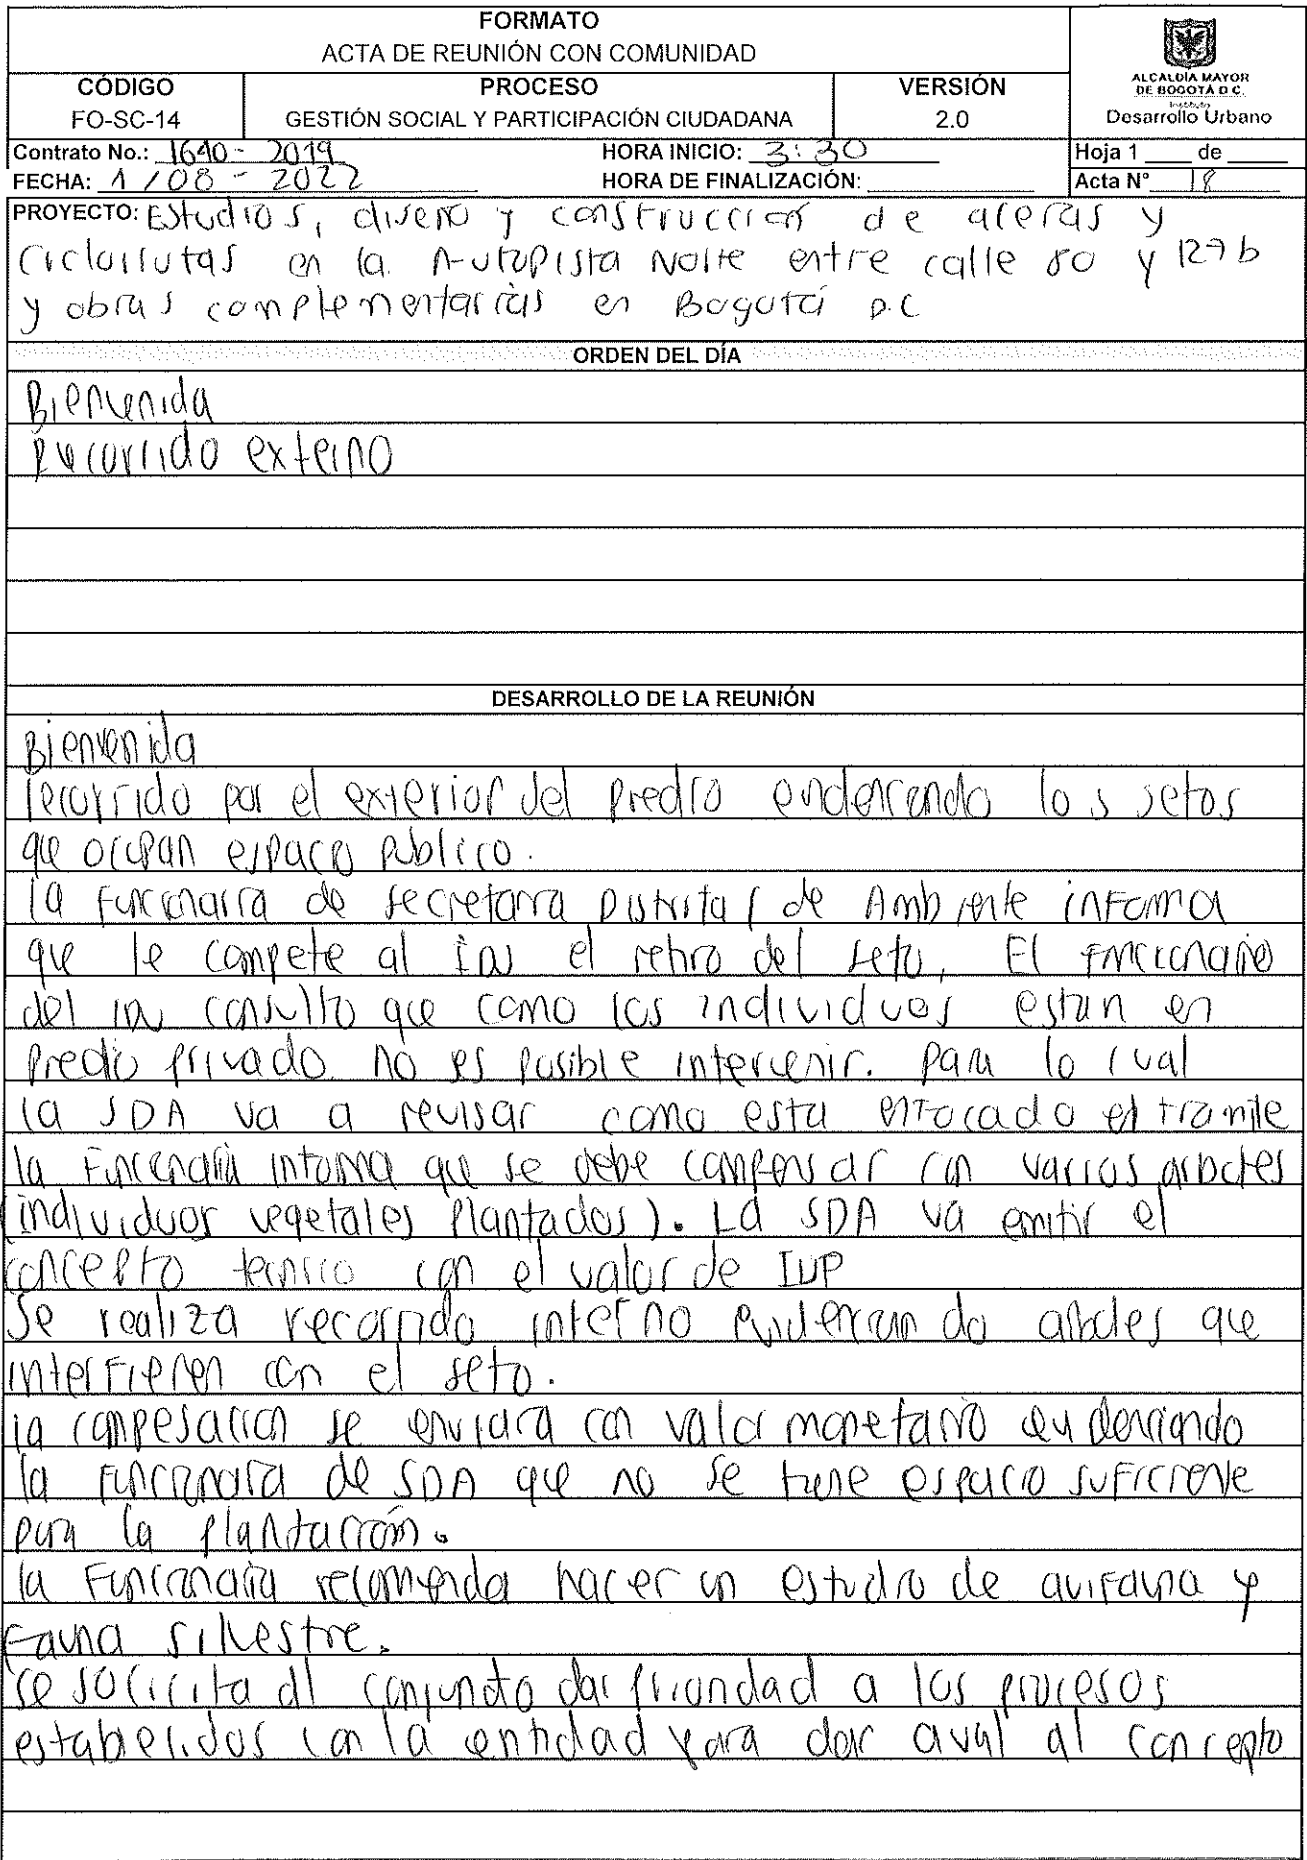 FORMATO
ACTA DE REUNIÓN CON COMUNIDAD
CÓDIGO
FO-SC-14
PROCESO
GESTIÓN SOCIAL Y PARTICIPACIÓN CIUDADANA
VERSIÓN
2.0
ALCALDÍA MAYOR
DE BOGOTÁ D.C.
Instituto
Desarrollo Urbano
Contrato No.: 1640 - 2019 HORA INICIO: 3:30 Hoja 1 ____ de ____
FECHA: 1 / 08 - 2022 HORA DE FINALIZACIÓN: ____ Acta N° 18
PROYECTO: Estudios, diseño y construcción de aceras y
Ciclorrutas en la Autopista Norte entre calle 80 y 127b
y obras complementarias en Bogotá D.C
ORDEN DEL DÍA
Bienvenida
Recorrido externo
DESARROLLO DE LA REUNIÓN
Bienvenida
recorrido por el exterior del predio evidenciando los setos
que ocupan espacio público.
la funcionaria de secretaria Distrital de Ambiente informa
que le compete al IDU el retiro del seto, El funcionario
del IDU consulto que como los individuos estan en
predio privado no es posible intervenir. para lo cual
la SDA va a revisar como esta enfocado el tramite
la Funcionaria informa que se debe compensar con varios arboles
(individuos vegetales plantados). La SDA va emitir el
concepto tecnico con el valor de IVP
Se realiza recorrido interno evidenciando arboles que
interfieren con el seto.
la compesacion se enviara con valor monetario evidenciando
la funcionaria de SDA que no se tiene espacio suficiente
para la plantación.
la Funcionaria recomienda hacer un estudio de avifauna y
fauna silvestre.
se solicita al conjunto dar prioridad a los procesos
establecidos con la entidad para dar aval al concepto